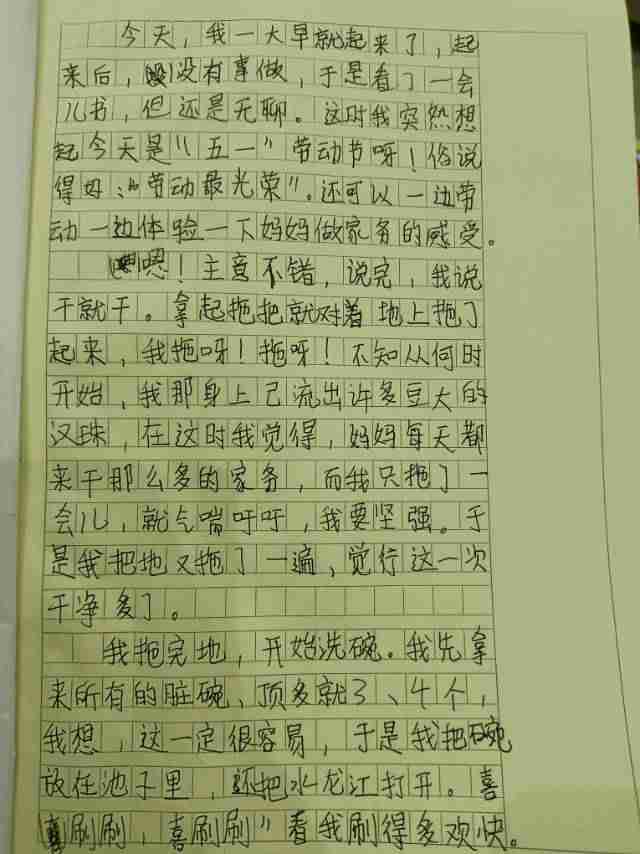 今天，我一大早就起来了，起
来后，没有事做，于是看了一会
儿书，但还是无聊。这时我突然想
起今天是“五一”劳动节呀！俗说
得好：“劳动最光荣”。还可以一边劳
动一边体验一下妈妈做家务的感受。
嗯！主意不错，说完，我说
干就干。拿起拖把就对着地上拖了
起来，我拖呀！拖呀！不知从何时
开始，我那身上已流出许多豆大的
汉珠，在这时我觉得，妈妈每天都
来干那么多的家务，而我只拖了一
会儿，就气喘吁吁，我要坚强。于
是我把地又拖了一遍，觉行这一次
干净多了。
我拖完地，开始洗碗。我先拿
来所有的脏碗、顶多就3、4个，
我想，这一定很容易，于是我把碗
放在池子里，还把水龙江打开。喜
刷刷，喜刷刷”看我刷得多欢快。